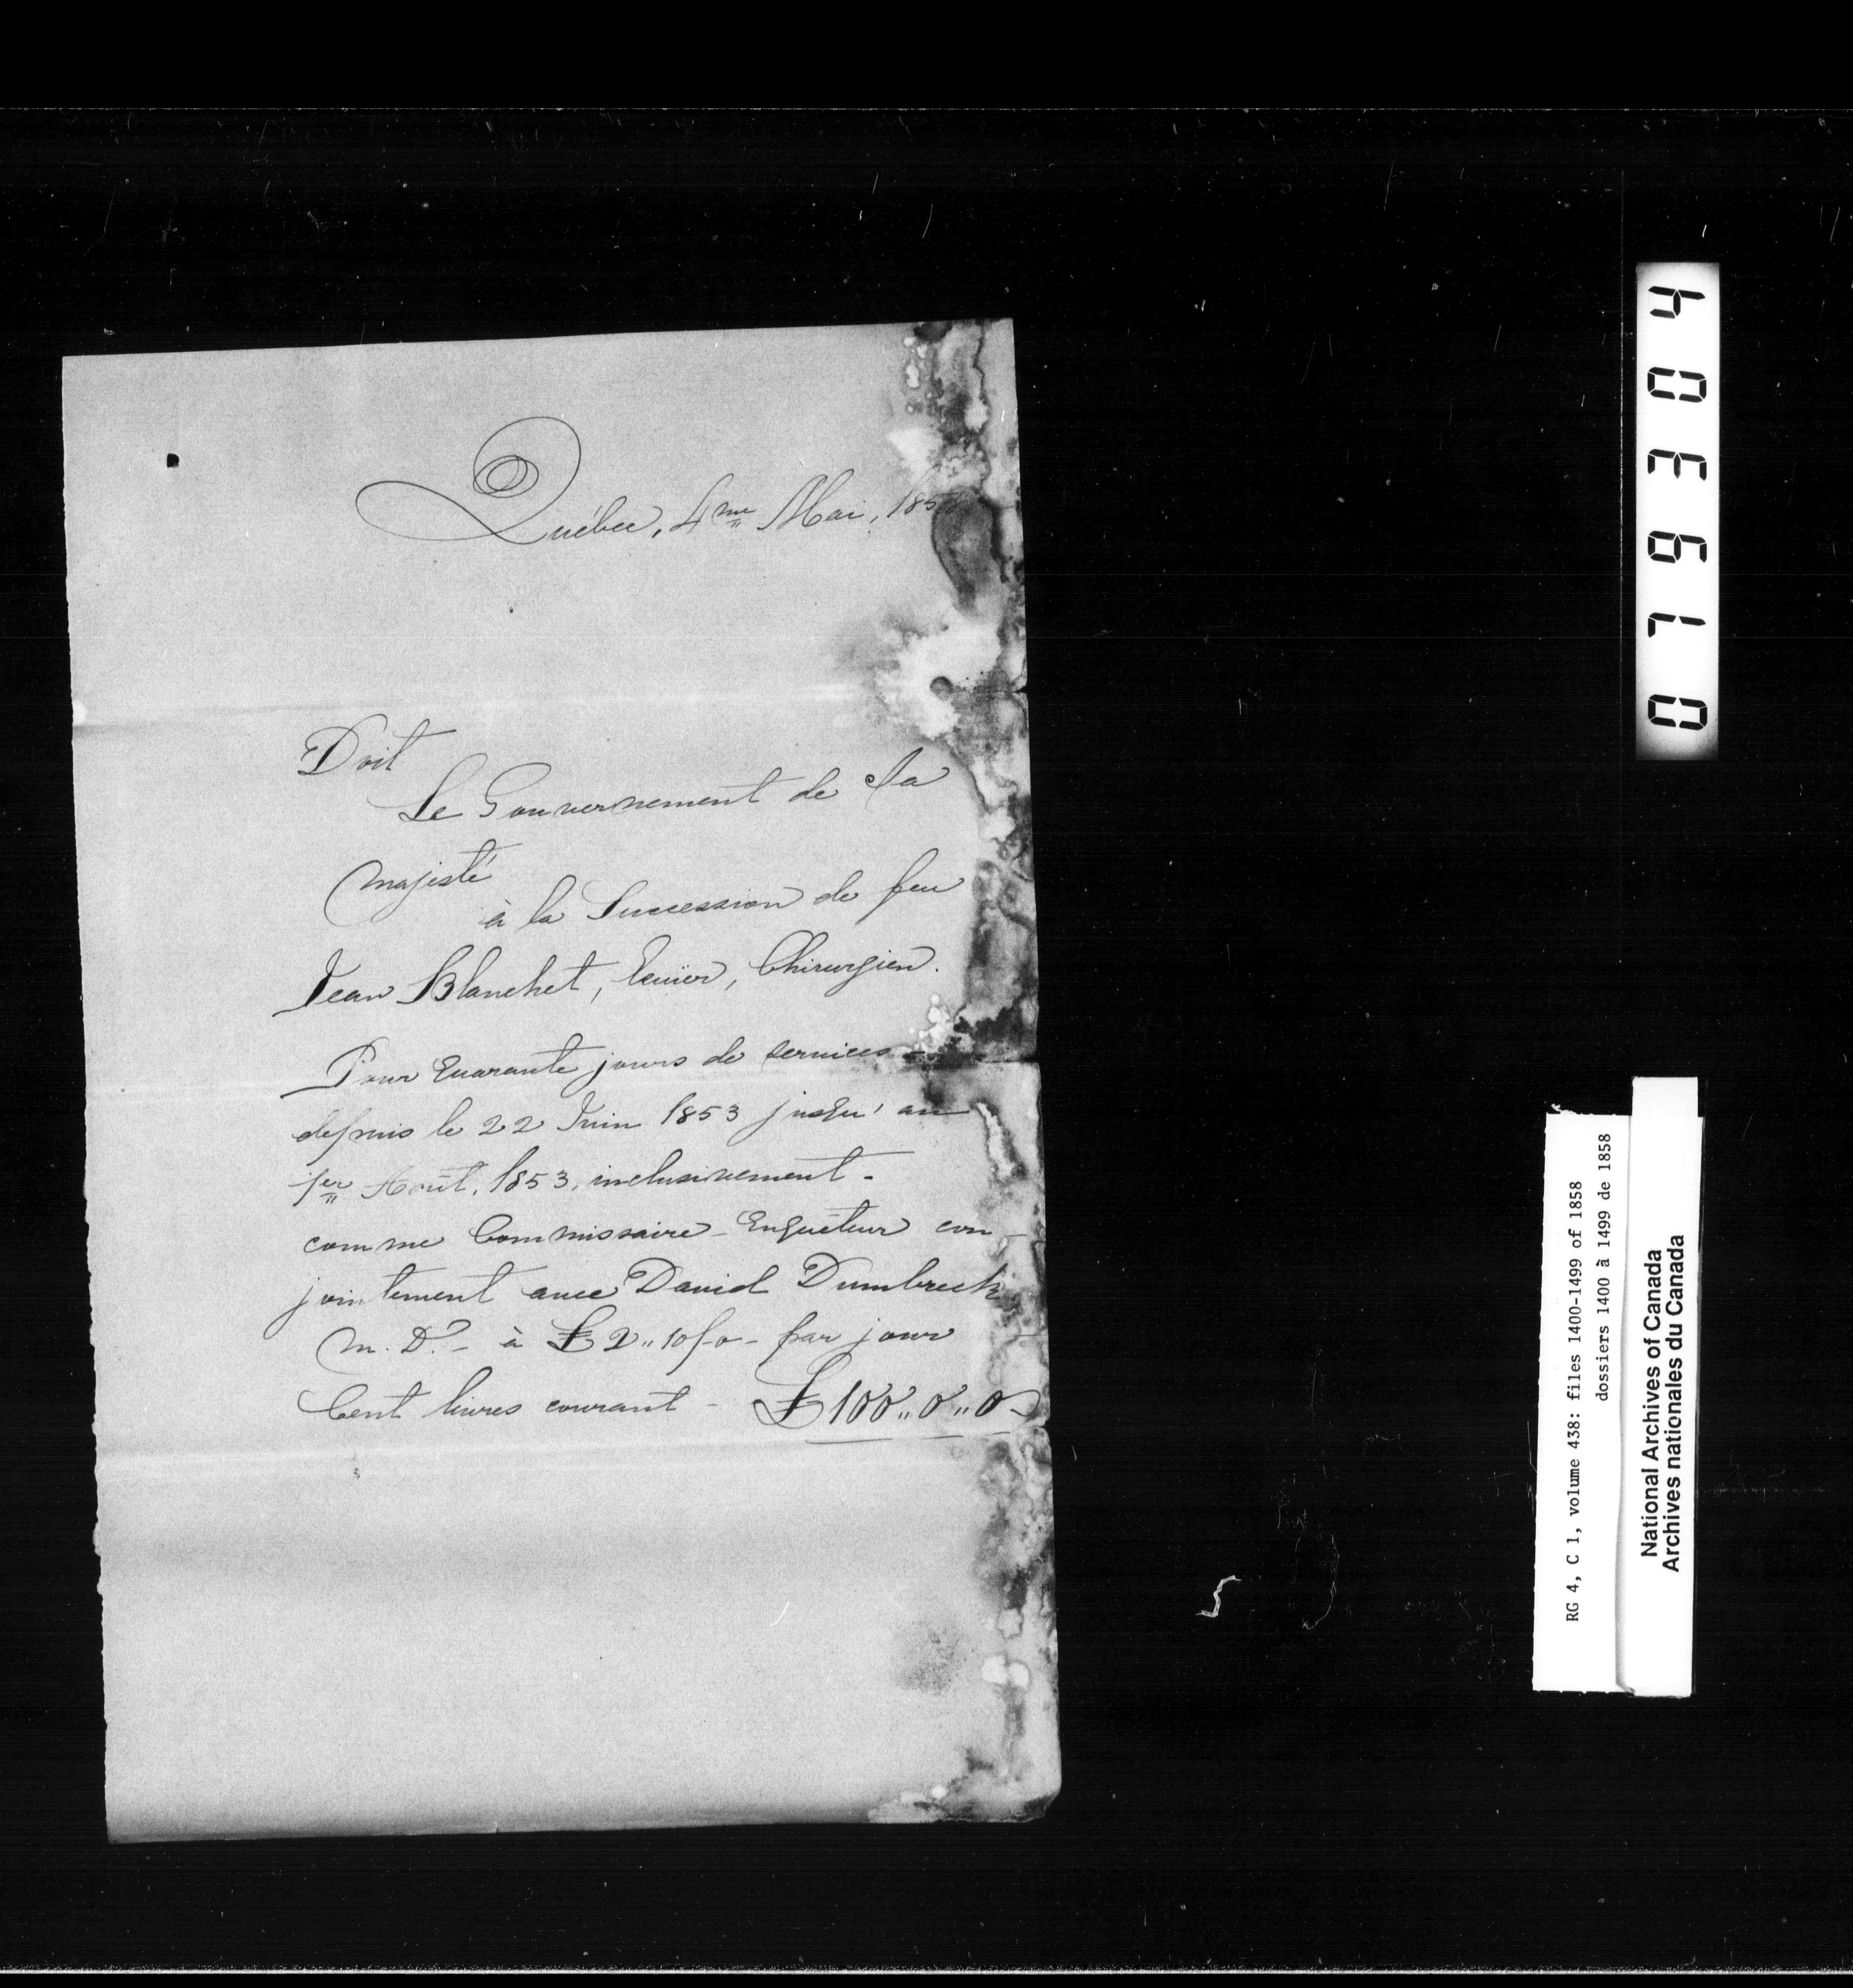 Québec, 4me Mai, 185
Doit
Le Gouvernement de Sa
Majesté
à la Succession de feu
Jean Blanchet, Ecuïer, Chirurgien.
Pour Quarante jours de services
depuis le 22 Juin 1853 jusqu'au
1er Août, 1853, inclusivement -
comme Commissaire - Enquêteur con-
jointement avec David Dumbreck
M. D. - à £2,,10/-0 - par jour
Cent livres courant - £100,,0,,0
017304
RG 4, C 1, volume 438: files 1400-1499 of 1858
dossiers 1400 à 1499 de 1858
National Archives of Canada
Archives nationales du Canada